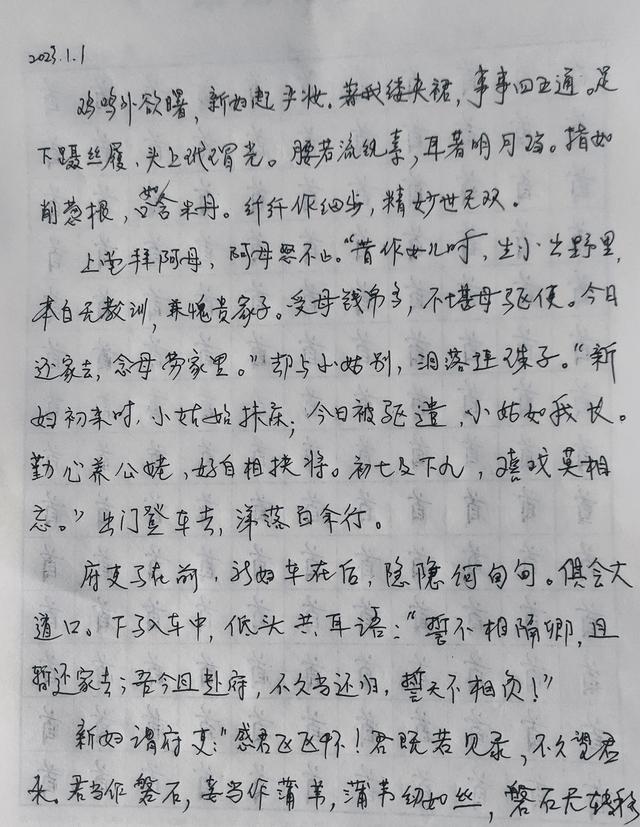 2023.1.1
鸡鸣外欲曙，新妇起严妆。著我绣夹裙，事事四五通。足
下蹑丝履，头上玳瑁光。腰若流纨素，耳著明月珰。指如
削葱根，口如含朱丹。纤纤作细步，精妙世无双。
上堂拜阿母，阿母怒不止。“昔作女儿时，生小出野里，
本自无教训，兼愧贵家子。受母钱帛多，不堪母驱使。今日
还家去，念母劳家里。”却与小姑别，泪落连珠子。“新
妇初来时，小姑始扶床；今日被驱遣，小姑如我长。
勤心养公姥，好自相扶将。初七及下九，嬉戏莫相
忘。”出门登车去，涕落百余行。
府吏马在前，新妇车在后，隐隐何甸甸。俱会大
道口。下马入车中，低头共耳语：“誓不相隔卿，且
暂还家去；吾今且赴府，不久当还归，誓天不相负！”
新妇谓府吏：“感君区区怀！君既若见录，不久望君
来。君当作磐石，妾当作蒲苇，蒲苇纫如丝，磐石无转移